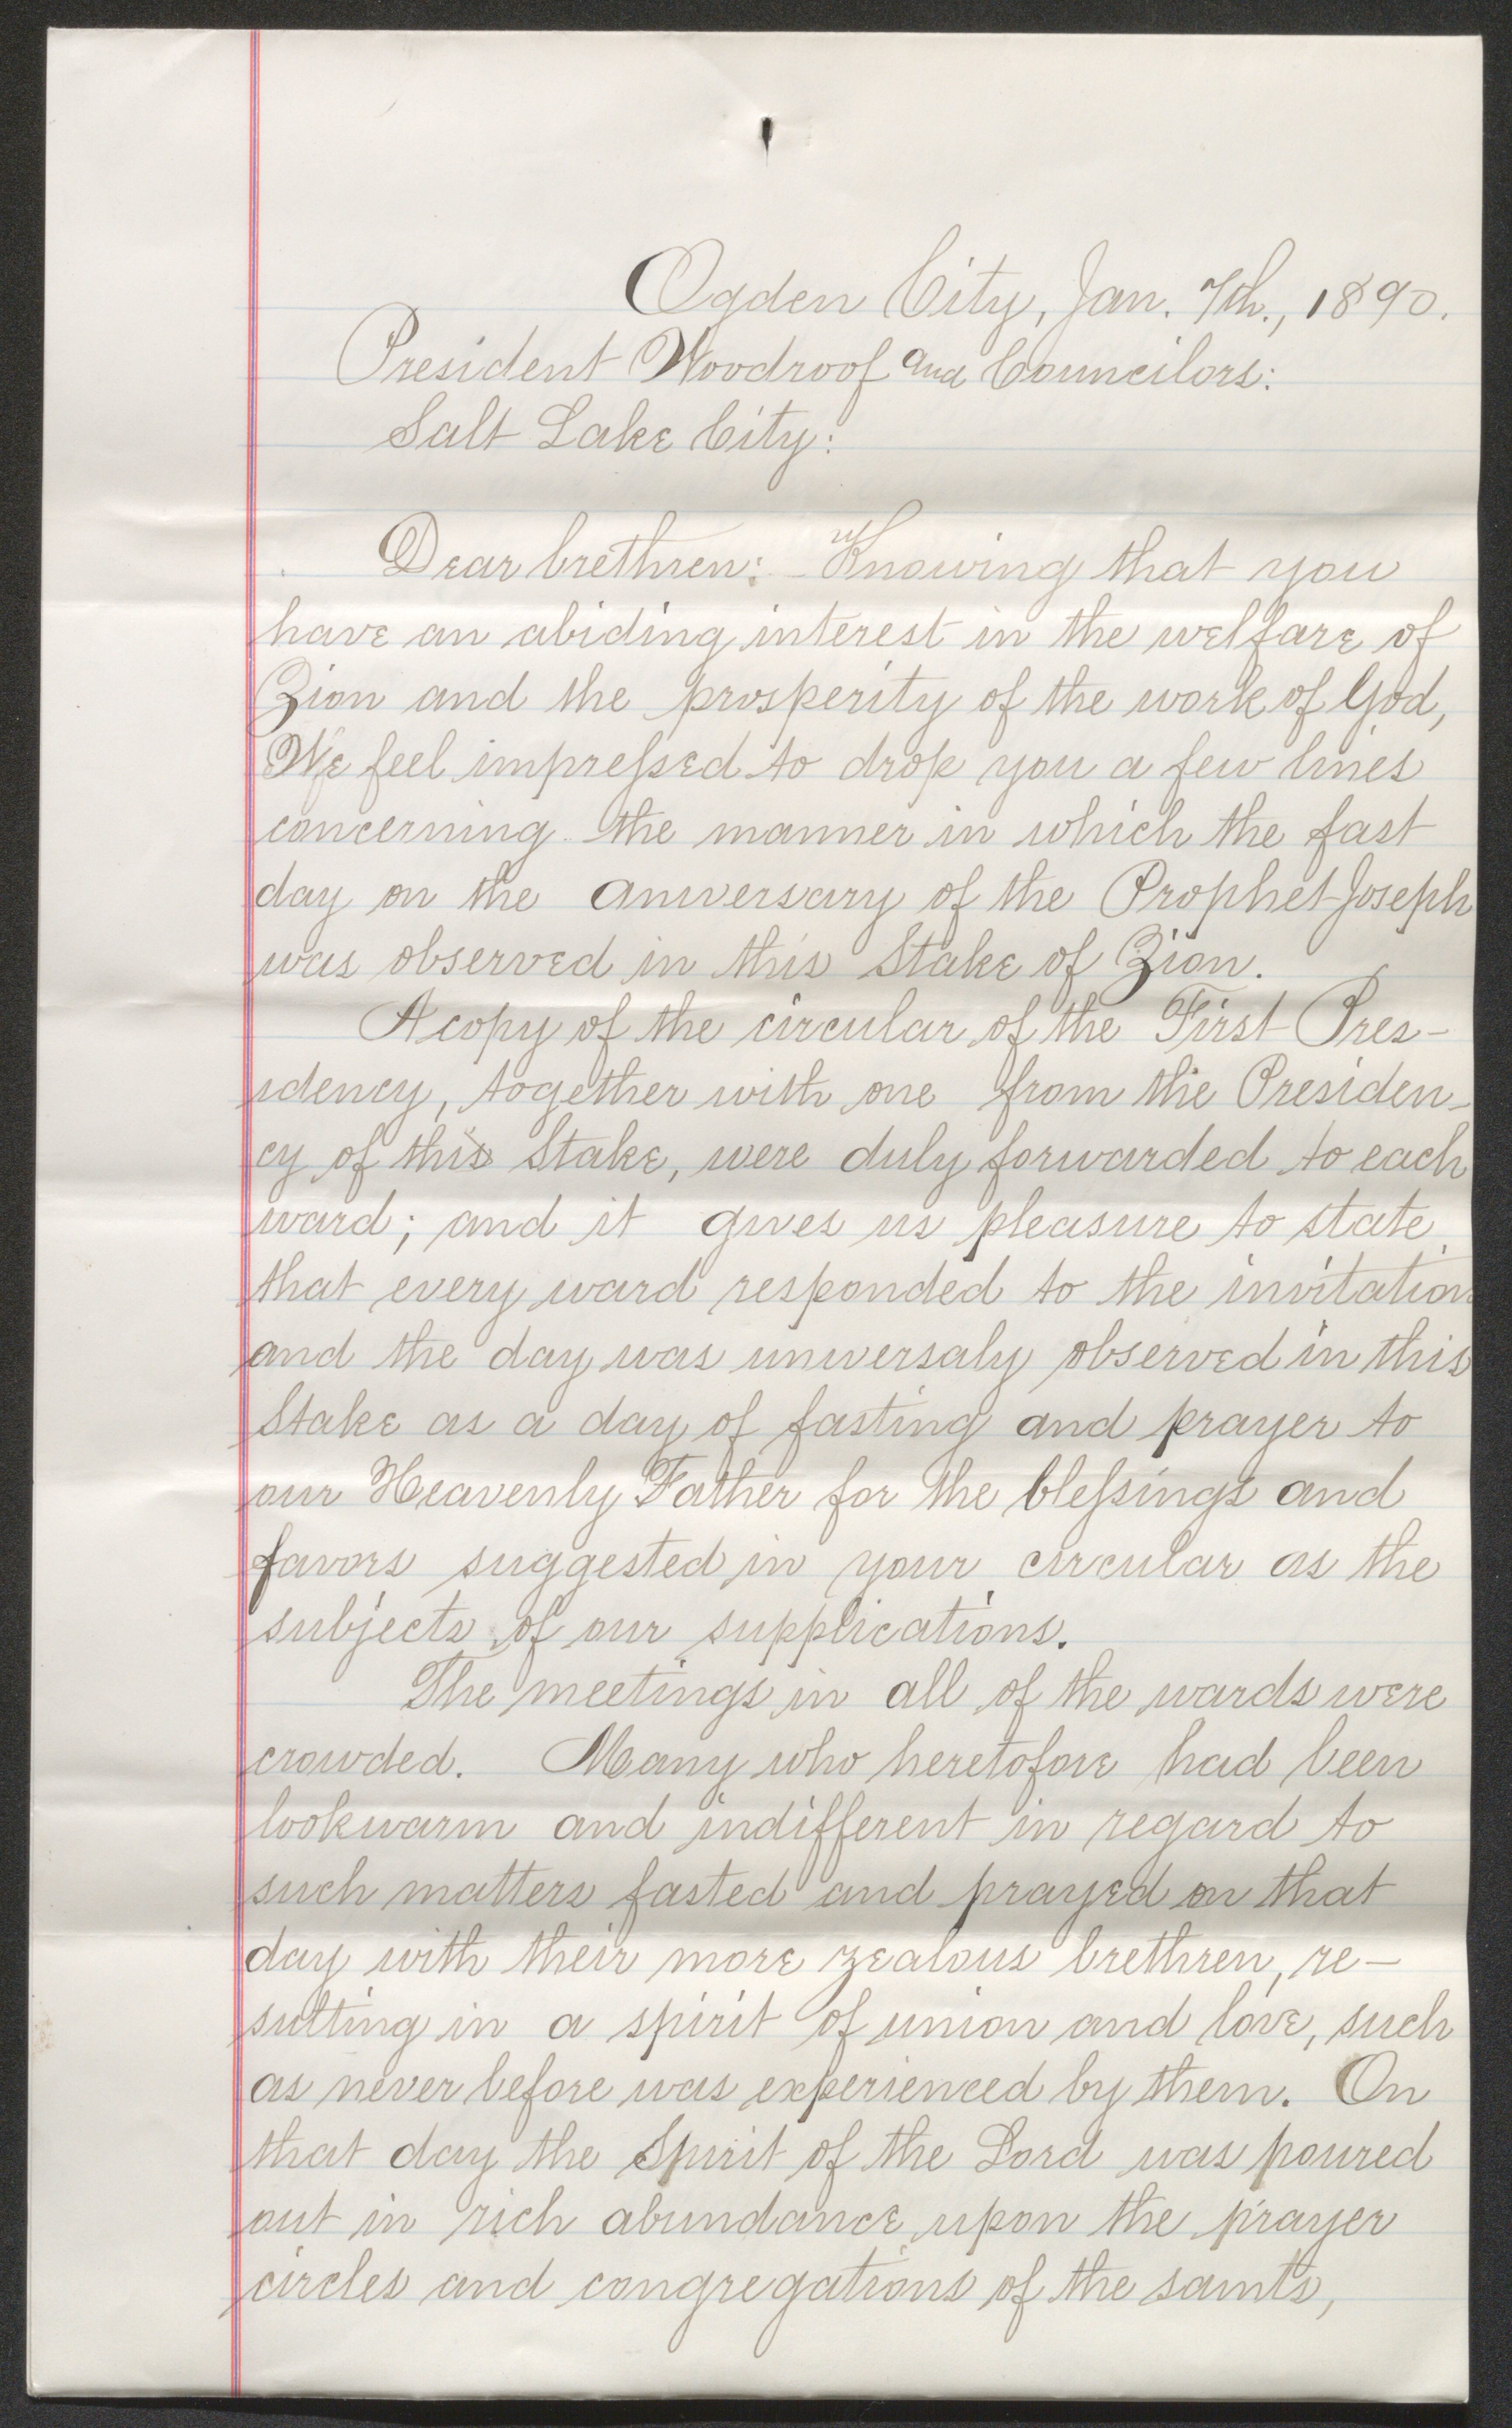 Ogden City, Jan. 7th., 1890.
President Woodroof and Councilors:
Salt Lake City:
Dear brethren: Knowing that you
have an abiding interest in the welfare of
Zion and the prosperity of the work of God,
We feel impressed to drop you a few lines
concerning the manner in which the fast
day on the aniversary of the Prophet Joseph
was observed in this Stake of Zion.
A copy of the circular of the First Pres-
idency, together with one from the Presiden-
cy of this Stake, were duly forwarded to each
ward; and it gives us pleasure to state
that every ward responded to the invitation
and the day was universaly observed in this
Stake as a day of fasting and prayer to
our Heavenly Father for the blessings and
favors suggested in your circular as the
subjects of our supplications.
The meetings in all of the wards were
crowded. Many who heretofore had been
lookwarm and indifferent in regard to
such matters fasted and prayed on that
day with their more zealous brethren, re-
sulting in a spirit of union and love, such
as never before was experienced by them. On
that day the Spirit of the Lord was poured
out in rich abundance upon the prayer
circles and congregations of the saints,